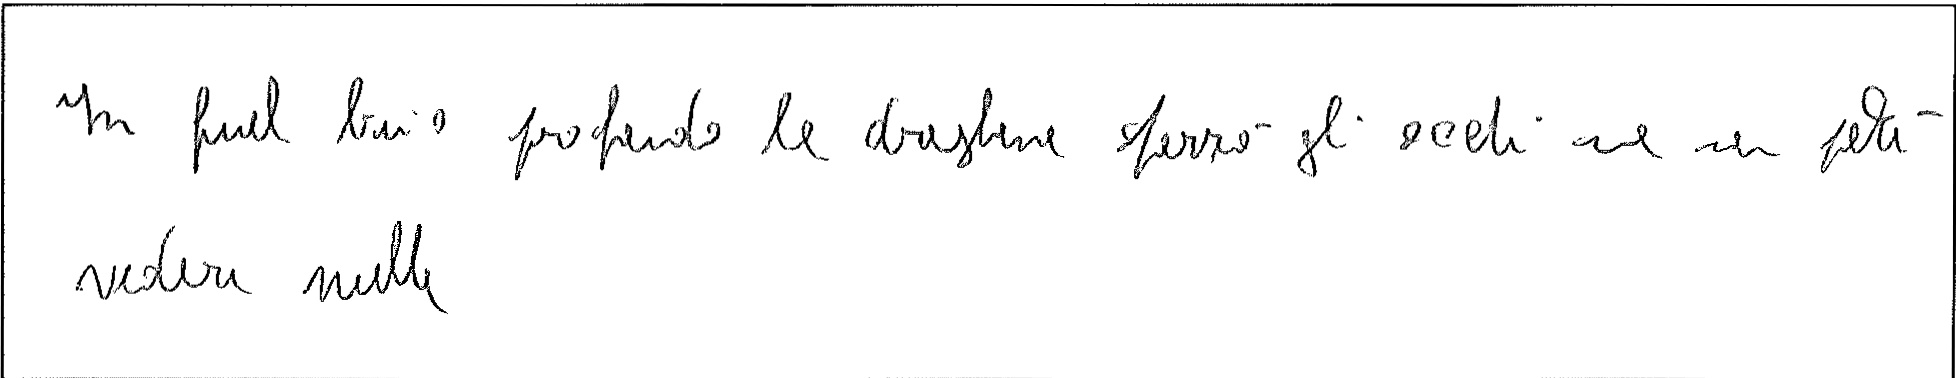 In quel buio profondo le draghine sforzò gli occhi ma non potè
vedere nulla